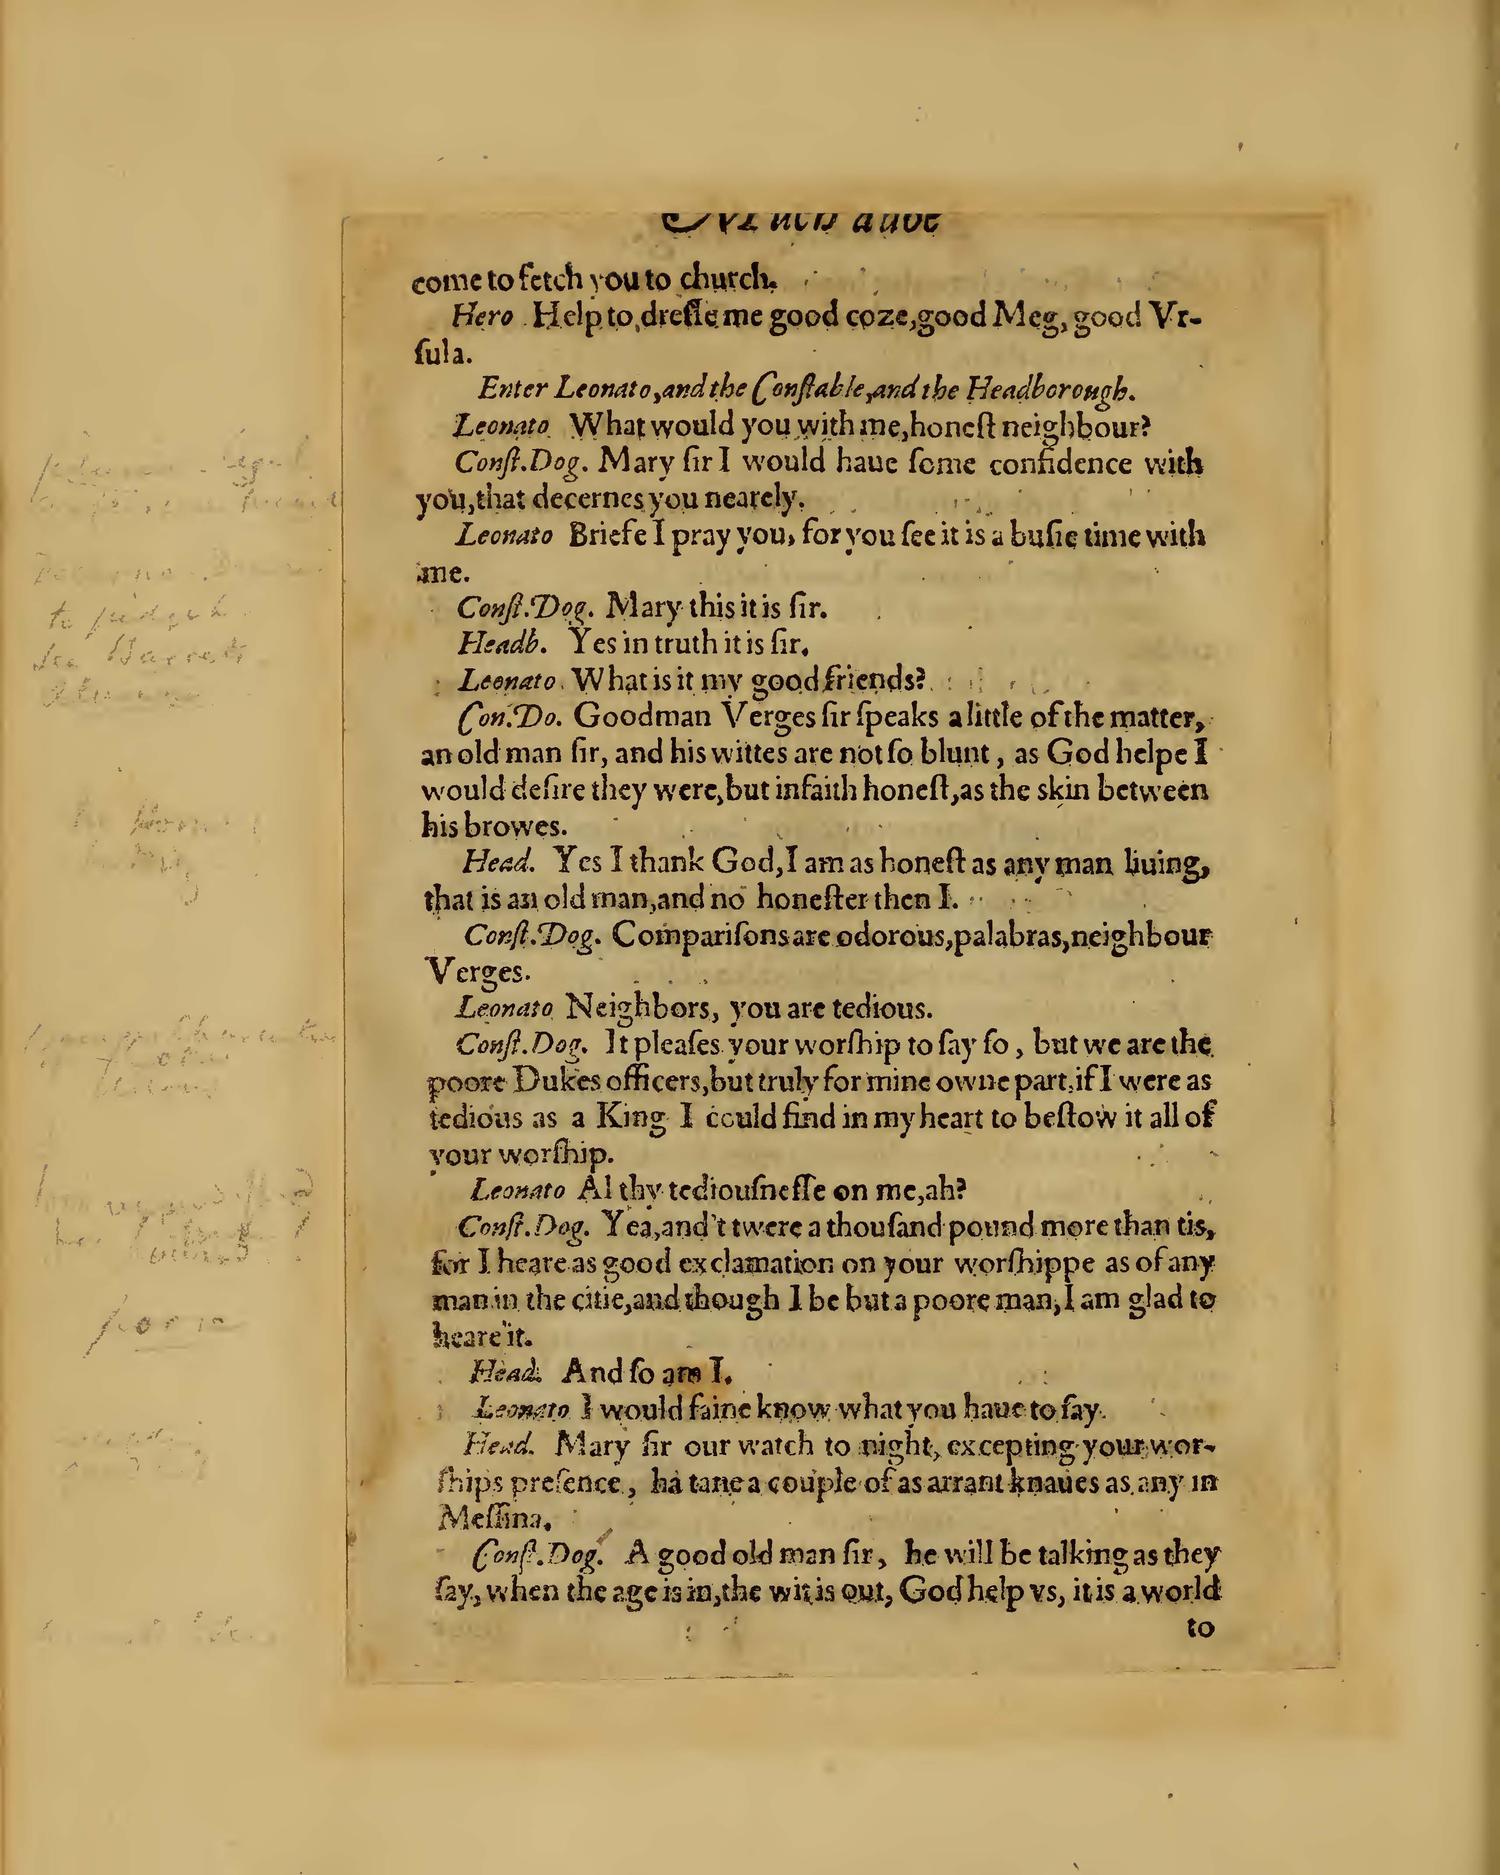 Much adoe
come to fetch you to church.
Hero Help to dreſſe me good coze, good Meg, good Vr-
ſula.
Enter Leonato, and the Conſtable, and the Headborough.
Leonato What would you with me, honeſt neighbour?
Conſt.Dog. Mary ſir I would haue ſome confidence with
you, that decernes you nearely.
Leonato Briefe I pray you, for you ſee it is a buſie time with
me.
Conſt.Dog. Mary this it is ſir.
Headb. Yes in truth it is ſir.
Leonato What is it my good friends?
Con.Do. Goodman Verges ſir ſpeaks a little of the matter,
an old man ſir, and his wittes are not ſo blunt, as God helpe I
would deſire they were, but infaith honeſt, as the skin between
his browes.
Head. Yes I thank God, I am as honeſt as any man liuing,
that is an old man, and no honeſter then I.
Conſt.Dog. Compariſons are odorous, palabras, neighbour
Verges.
Leonato Neighbors, you are tedious.
Conſt.Dog. It pleaſes your worſhip to ſay ſo, but we are the
poore Dukes officers, but truly for mine owne part, if I were as
tedious as a King I could find in my heart to beſtow it all of
your worſhip.
Leonato Al thy tediouſneſſe on me, ah?
Conſt.Dog. Yea, and't twere a thouſand pound more than tis,
for I heare as good exclamation on your worſhippe as of any
man in the citie, and though I be but a poore man, I am glad to
heare it.
Head. And ſo am I.
Leonato I would faine know what you haue to ſay.
Head. Mary ſir our watch to night, excepting your wor-
ſhips preſence, ha tane a couple of as arrant knaues as any in
Meſſina.
Conſt.Dog. A good old man ſir, he will be talking as they
ſay, when the age is in, the wit is out, God help vs, it is a world
to